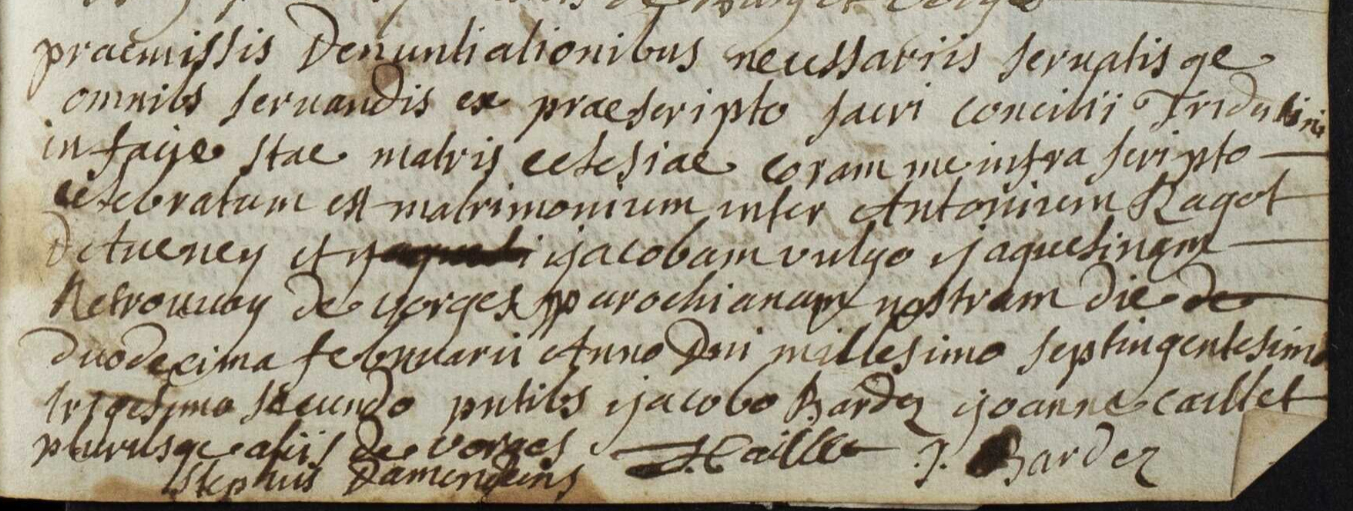 praemissis Denuntiationibus necessariis servatis qe
omnibs servandis ex praescripto sacri concilii Tridentini
in facie stae matris eclesiae coram me infra scripto
celebratum est matrimonium inter Antonium Ragot
D'Aveney et jacobam vulgo jaquetinam
de vorges parochianam nostram die de
duodecima februarii Anno Dni millesimo septingentesimo
trigesimo secundo pntibs jacobo Bardez joanne caillet
plurisqe aliis de vorges J Caillet J. Bardez